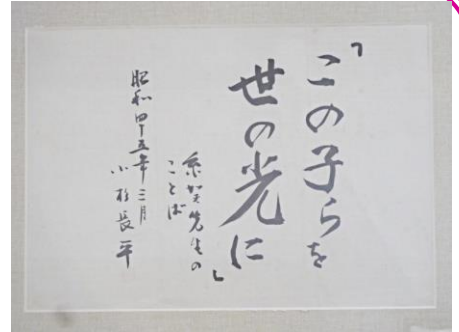 「この子らを
世の光に」
糸賀先生の
ことば
昭和四十五年三月
小杉長平